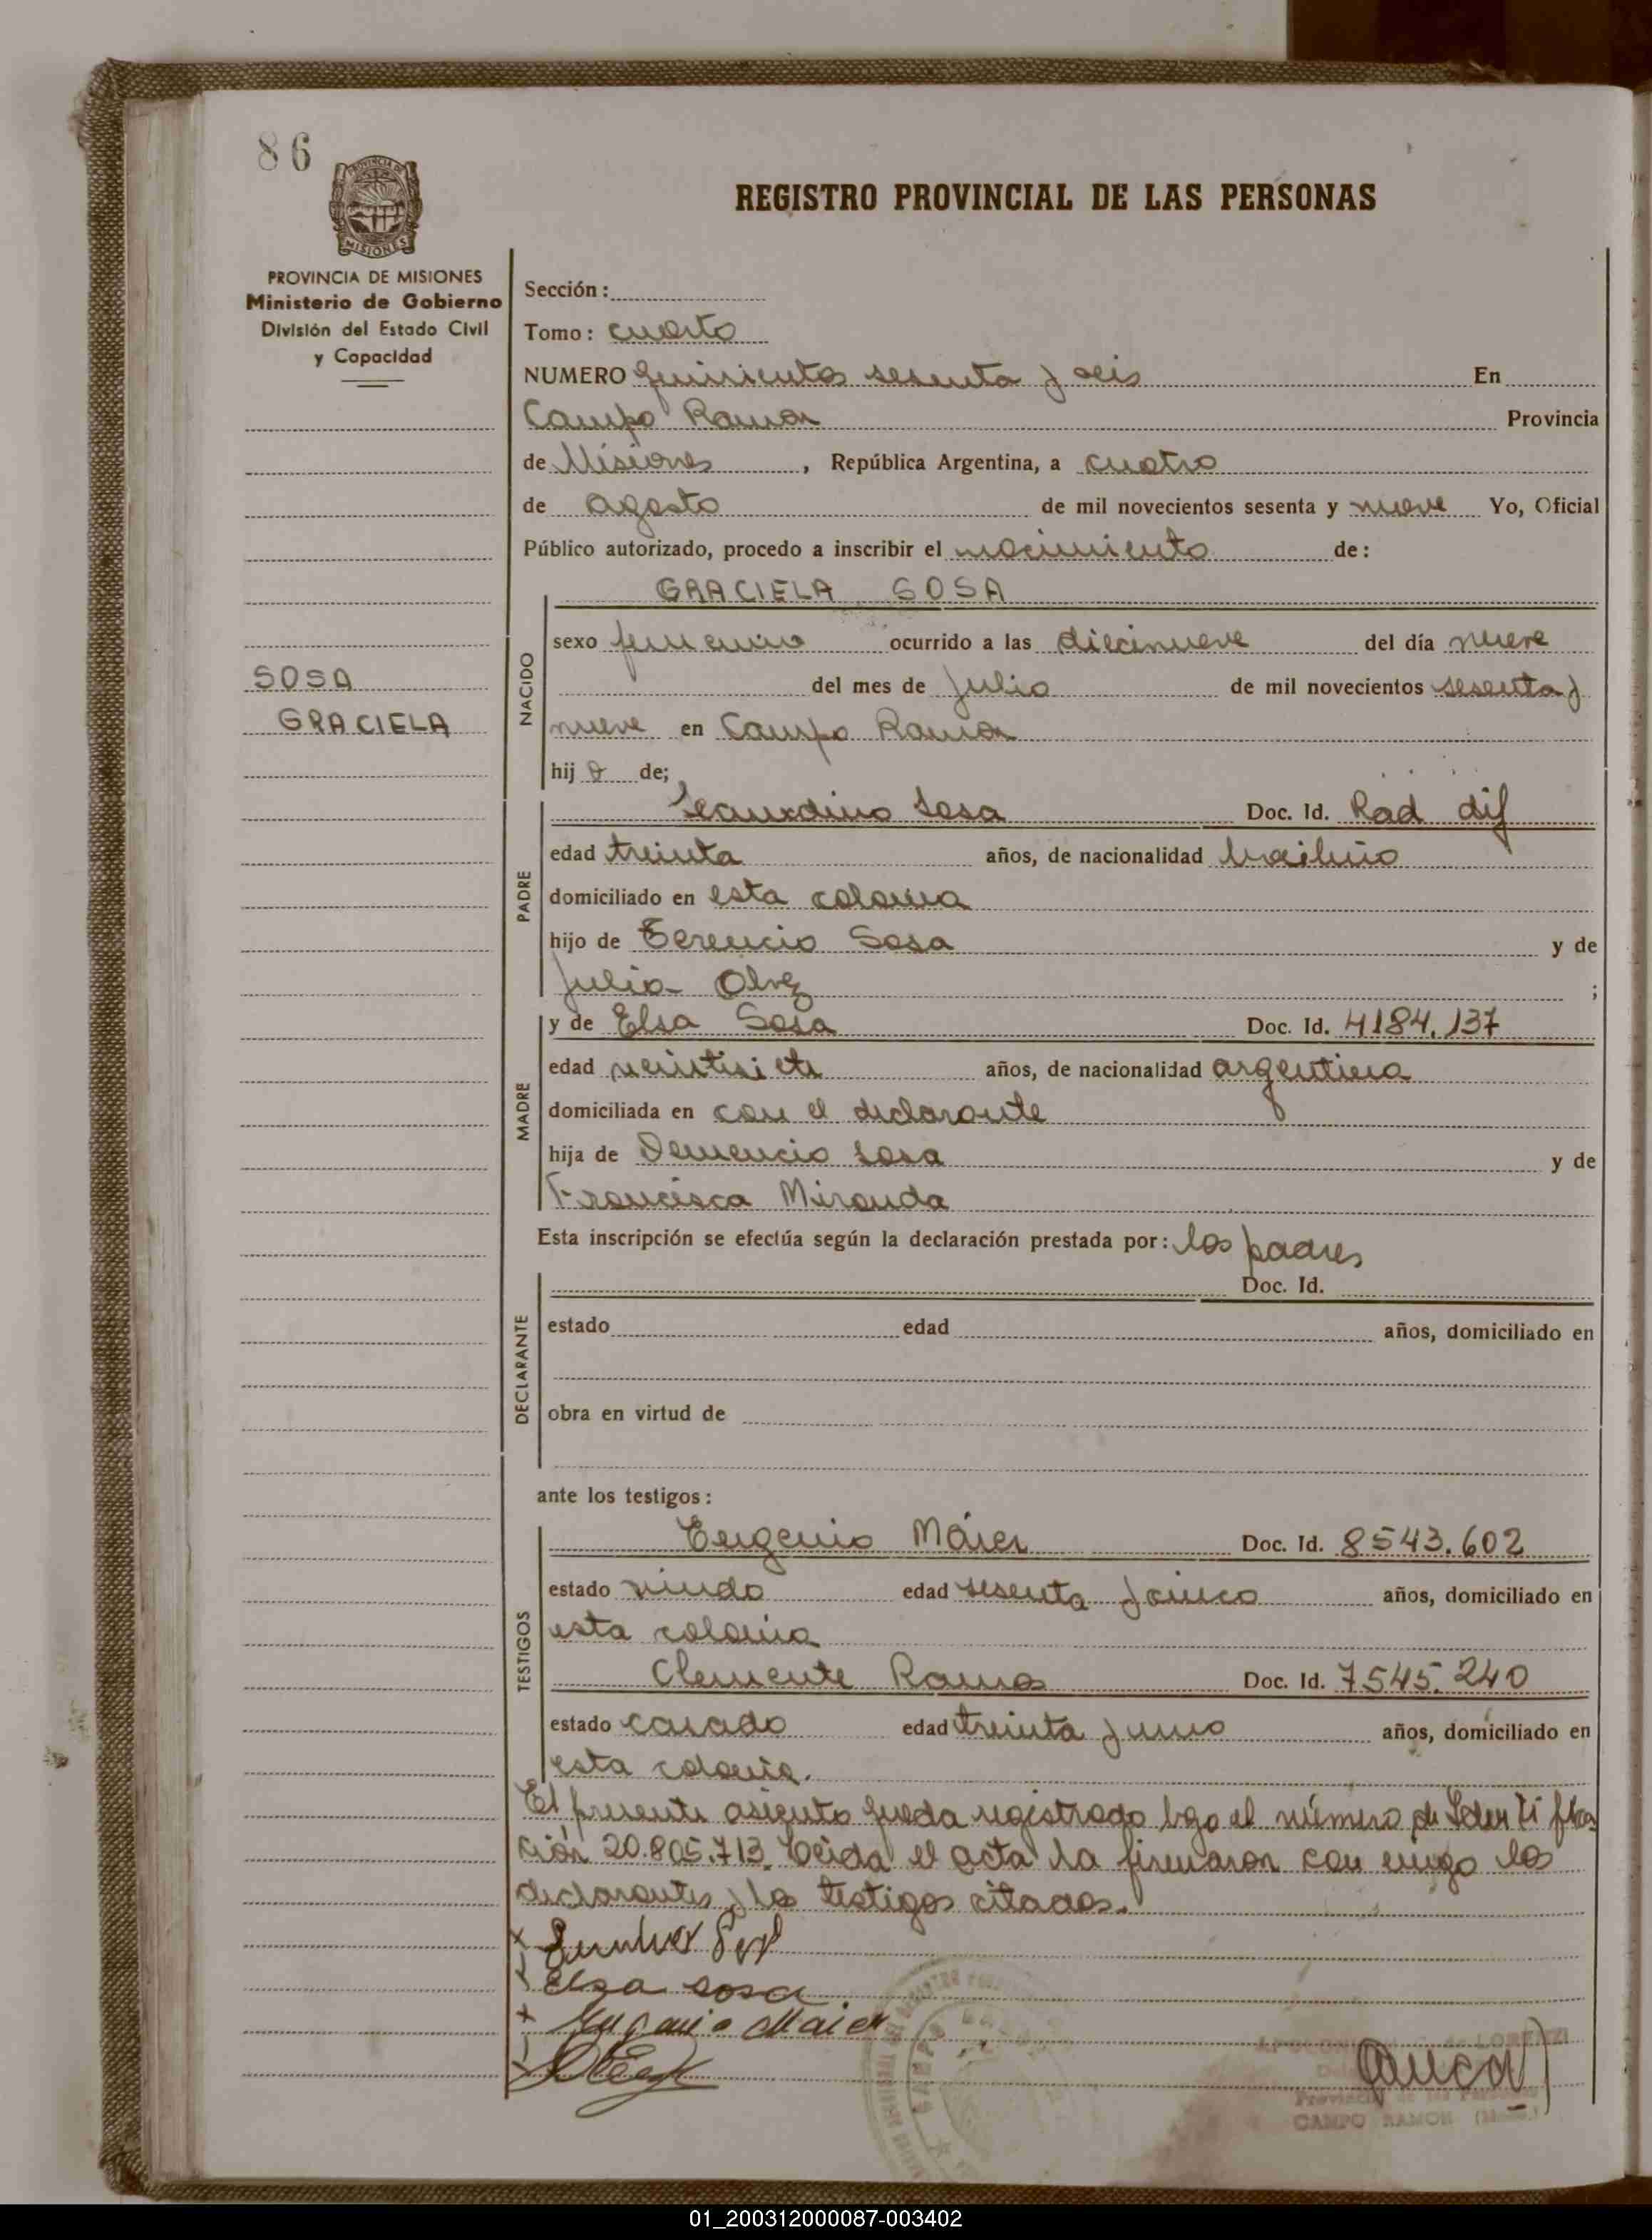 86
PROVINCIA DE
MISIONES
REGISTRO PROVINCIAL DE LAS PERSONAS
PROVINCIA DE MISIONES
Ministerio de Gobierno
División del Estado Civil
y Capacidad
Sección:
Tomo: cuarto
NUMERO quinientos sesenta y seis En
Campo Ramon Provincia
de Misiones, República Argentina, a cuatro
de agosto de mil novecientos sesenta y nueve Yo, Oficial
Público autorizado, procedo a inscribir el nacimiento de:
GRACIELA SOSA
SOSA
GRACIELA
NACIDO
sexo femenino ocurrido a las diecinueve del día nueve
del mes de Julio de mil novecientos sesenta y
nueve en Campo Ramon
hij a de;
PADRE
Sosa Doc. Id. Rad dif
edad treinta años, de nacionalidad
domiciliado en esta colonia
hijo de Terencio Sosa y de
Julia ;
MADRE
y de Elsa Sosa Doc. Id. 4184.137
edad veintisiete años, de nacionalidad argentina
domiciliada en con el declarante
hija de Demencio Sosa y de
Francisca Miranda
Esta inscripción se efectúa según la declaración prestada por: los padres
DECLARANTE
Doc. Id.
estado edad años, domiciliado en
obra en virtud de
ante los testigos:
TESTIGOS
Eugenio Maier Doc. Id. 8543.602
estado viudo edad sesenta y cinco años, domiciliado en
esta colonia
Clemente Ramos Doc. Id. 7545.240
estado casado edad treinta y uno años, domiciliado en
esta colonia.
El presente asiento queda registrado bajo el número de Identifica
ción 20.805.713. Leida el acta la firmaron con migo los
declarantes y los testigos citados.
Elsa sosa
Eugenio Maier
de LORENZI
CAMPO RAMON
01_200312000087-003402